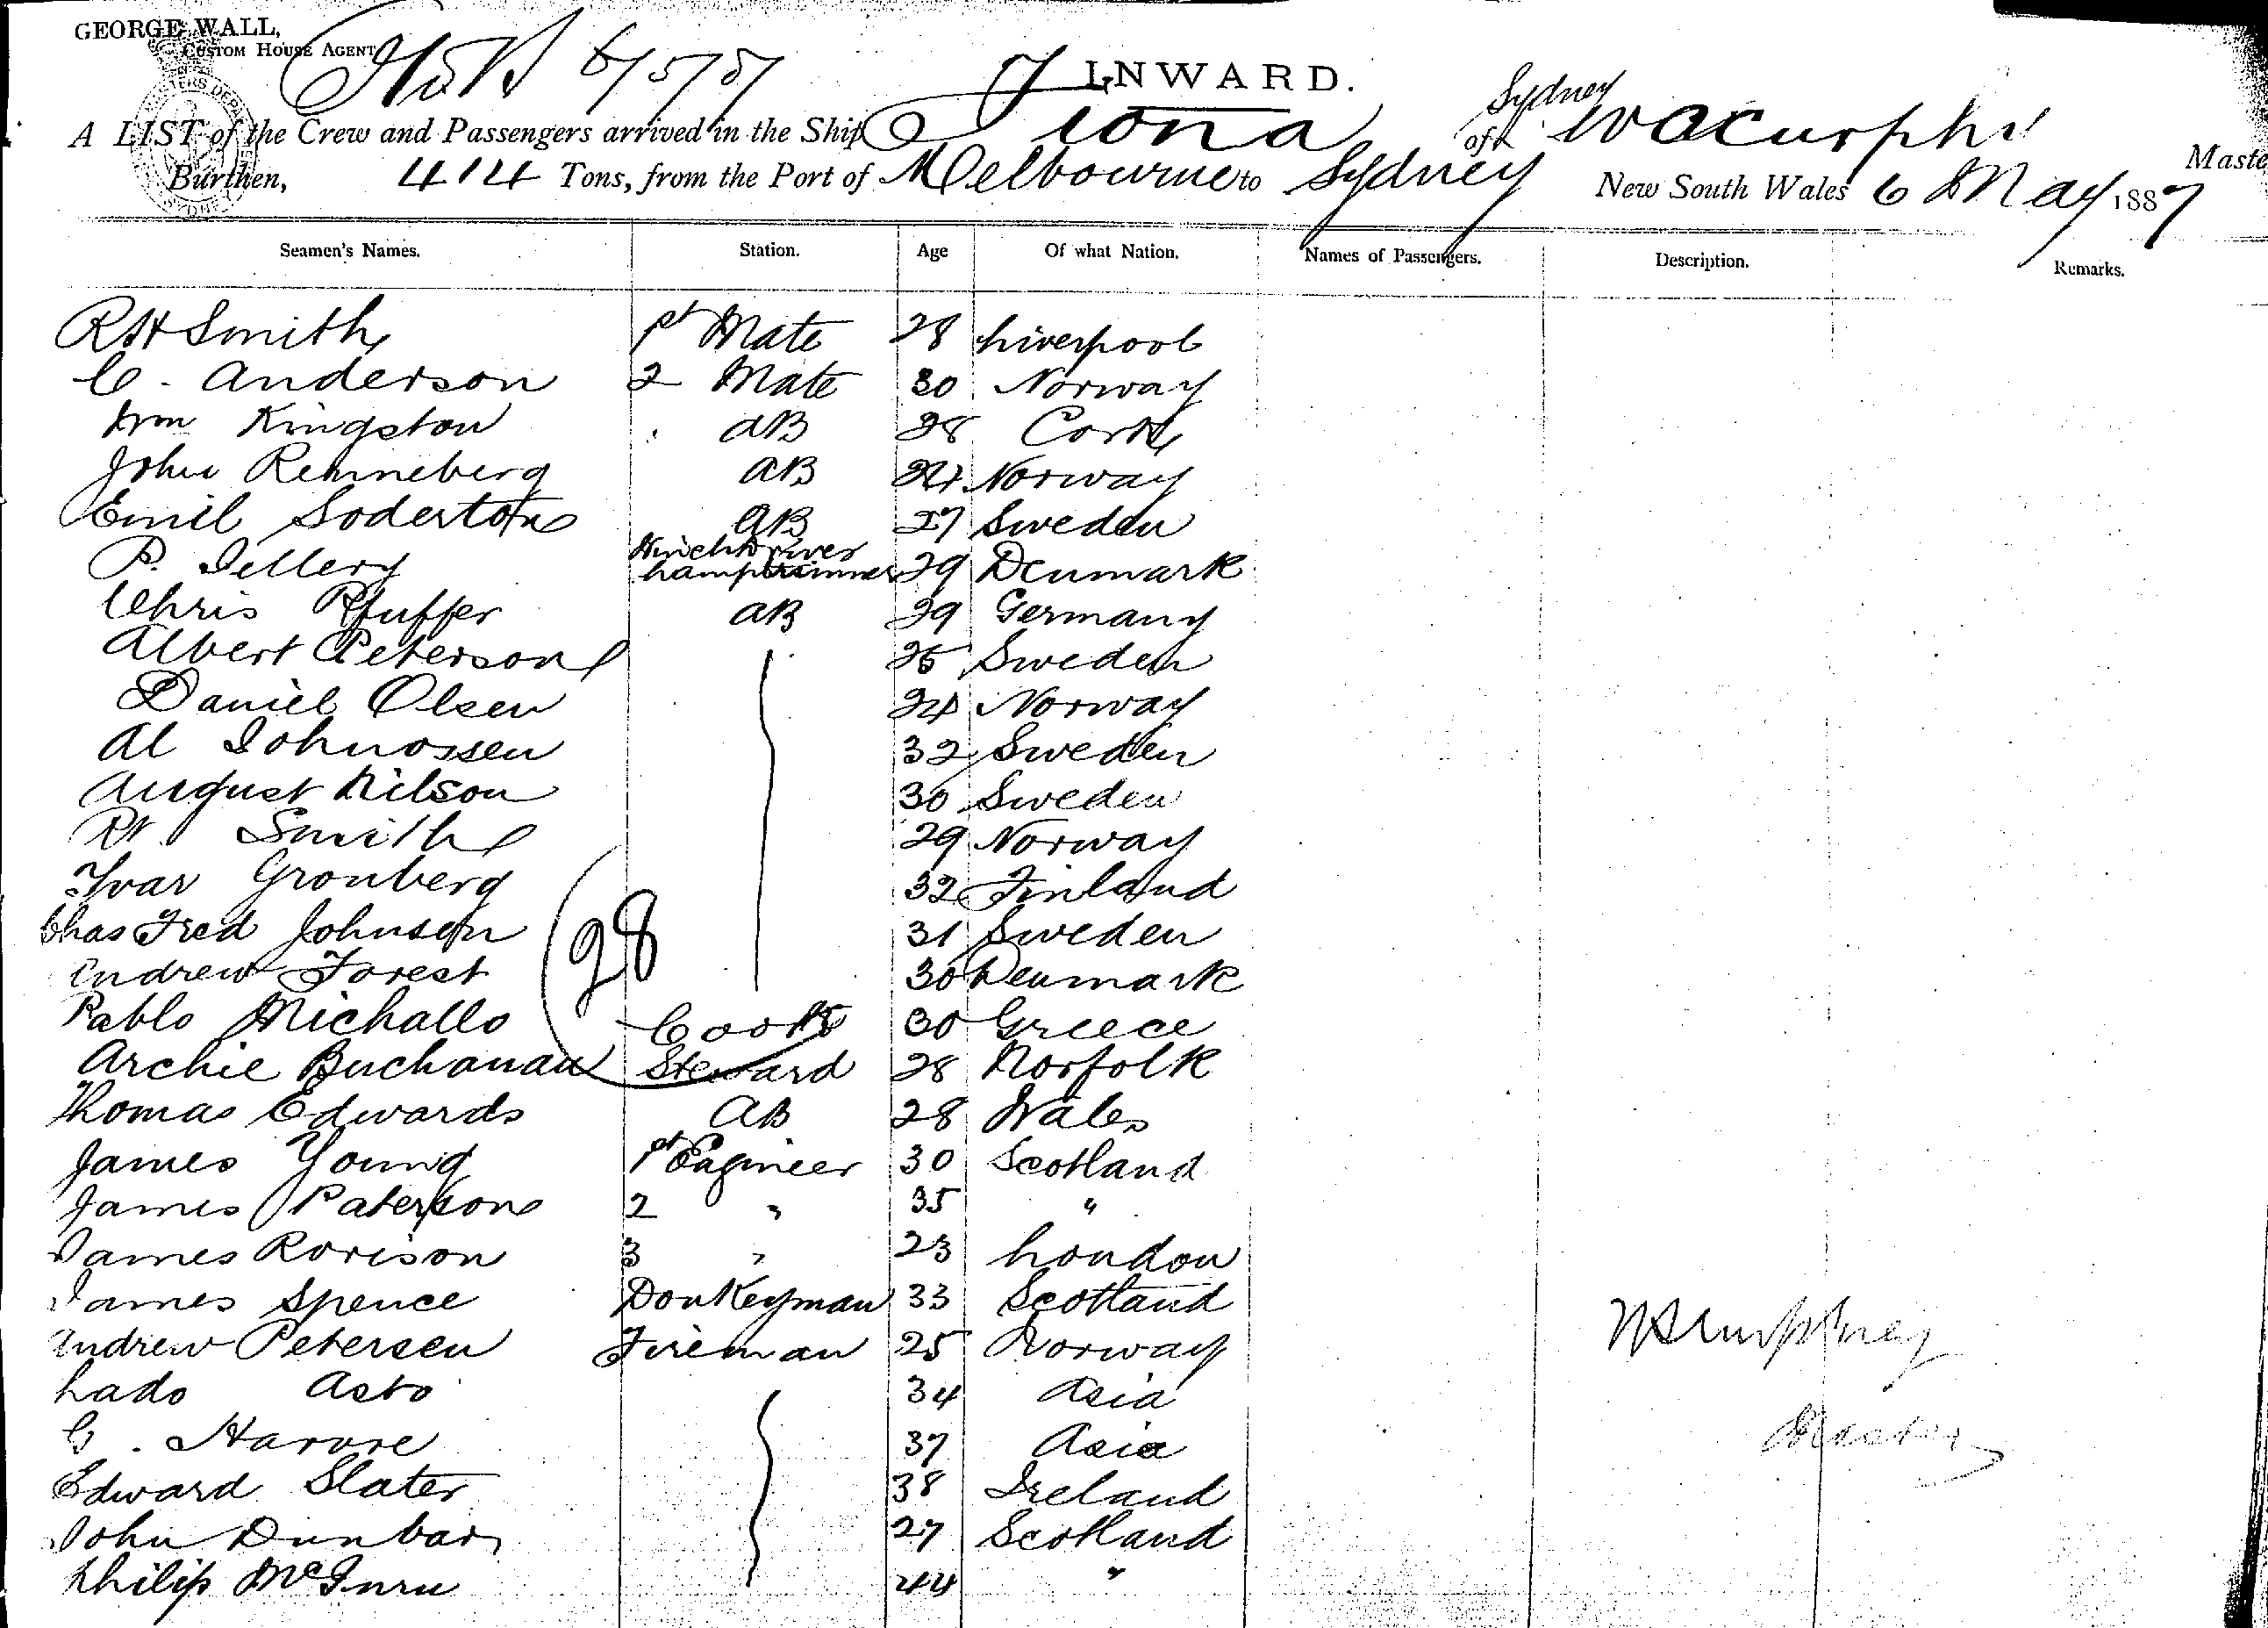 GEORGE WALL,
CUSTOM HOUSE AGENT
6/5/87
INWARD.
A LIST of the Crew and Passengers arrived in the Ship Iona of Sydney Master
Burthen, 414 Tons, from the Port of Melbourne to Sydney New South Wales 6 May 1887
Seamen's Names. Station. Age Of what Nation. Names of Passengers. Description. Remarks.
RH Smith 1st Mate 28 Liverpool
C. Anderson 2 Mate 30 Norway
Wm Kingston AB 28 Cork
John Renneberg AB 24 Norway
Emil Soderton AB 27 Sweden
P. Jellery Winchdriver Lamptrimmer 29 Denmark
Chris Pfuffer AB 29 Germany
Albert Peterson 25 Sweden
Daniel Olsen 24 Norway
Al Johnossen 32 Sweden
August Nilson 30 Sweden
Rt Smith 29 Norway
Ivar Gronberg 32 Finland
Chas Fred Johnson 31 Sweden
28
Andrew Forest 30 Denmark
Pablo Michallo Cook 30 Greece
Archie Buchanan Steward 28 Norfolk
Thomas Edwards AB 28 Wales
James Young 1st Engineer 30 Scotland
James Paterson 2 " 35 "
James Rorison 3 " 23 London
James Spence Donkeyman 33 Scotland
Andrew Petersen Fireman 25 Norway
Lado Asto 34 Asia
G. Harvre 37 Asia
Edward Slater 38 Ireland
John Dunbar 27 Scotland
Philip McInru 44 "
Master